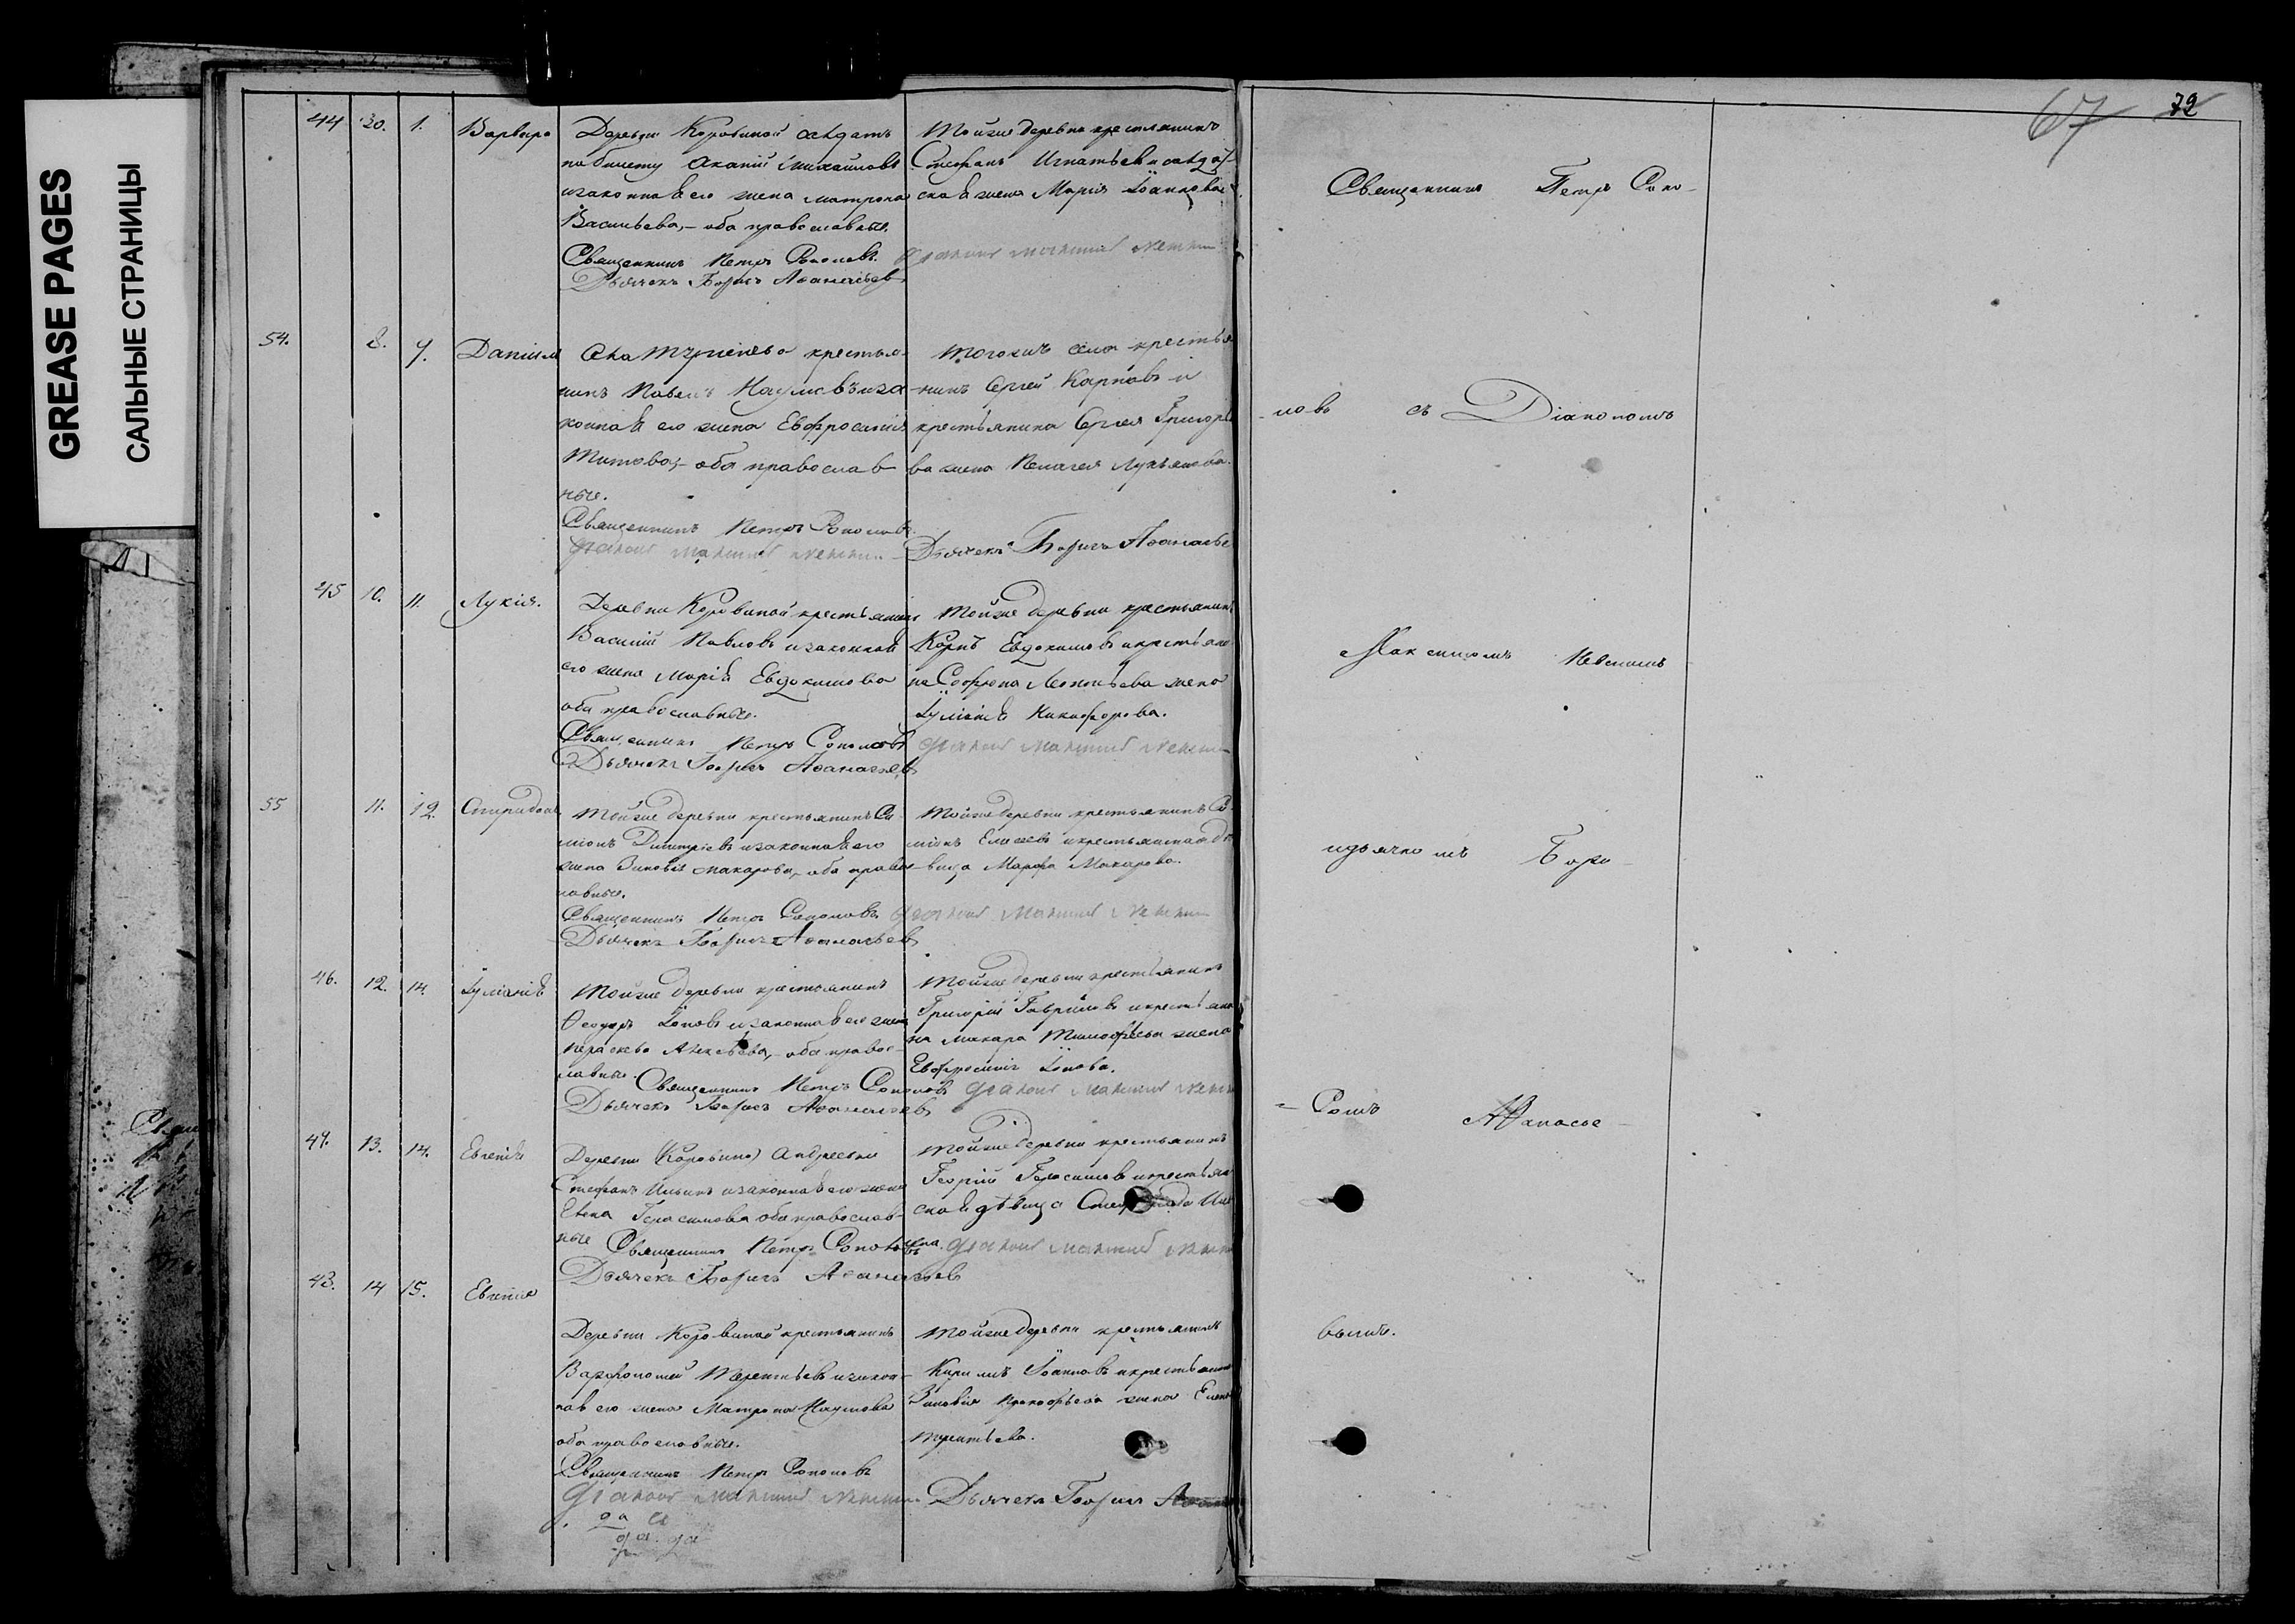 GREASE PAGES
САЛЬНЫЕ СТРАНИЦЫ
67 72
44 30. 1. Варвара
Деревни Коровиной солдатъ
по билету Акакий Михайловъ
и законная его жена Матрона
Васильева, – оба православные.
Священникъ Петръ Соколовъ.
Дьячекъ Борисъ Афанасьевъ
Тойже деревни крестьянинъ
Стефанъ Игнатьевъ и солдат-
ская жена Марія Іоаннова
Діаконъ Максимъ
54. 8. 9. Даніилъ
Села крестья-
нинъ Павелъ Наумовъ и за-
конная его жена Евфросинія
Титова, – оба православ-
ные.
Священникъ Петръ Соколовъ
Діаконъ Максимъ
Тогожъ села крестья
нинъ Сергей Карповъ и
крестьянина Сергея Григорье
ва жена Пелагея Лукьянова.
Дьячекъ Борисъ Афанасье
45 10. 11. Лукія.
Деревни Коровиной крестьянинъ
Василій Павловъ и законная
его жена Марія Евдокимова
оба православные.
Священникъ Петръ Соколовъ
Дьячекъ Борисъ Афанасьевъ
Тойже деревни крестьянинъ
Евдокимовъ и крестьяни
на Софрона Леонтьева жена
Іуліанія Никифорова.
Діаконъ Максимъ
55 11. 12. Спиридонъ
Тойже деревни крестьянинъ Си
міонъ Димитріевъ и законная его
жена Зиновія Макарова, – оба правос
лавные.
Священникъ Петръ Соколовъ
Дьячекъ Борисъ Афанасьевъ
Тойже деревни крестьянинъ Си-
міонъ Елисеевъ и крестьянская дѣ
вица Марфа Макарова.
Діаконъ Максимъ
46. 12. 14. Іуліанія
Тойже деревни крестьянинъ
Ѳеодоръ Іоновъ и законная его жена
Параскева Алексѣева, – оба правос-
лавные. Священникъ Петръ Соколовъ
Дьячекъ Борисъ Афанасьевъ
Тойже деревни крестьянинъ
Григорій Гавриловъ и крестьяни
на Макара Тимофѣева жена
Евфросинія Іонова.
Діаконъ Максимъ
47. 13. 14. Евгенія
Деревни Коровиной Андреевки
Стефанъ Ильинъ и законная его жена
Елена Герасимова оба православ-
ные Священникъ Петръ Соколовъ
Дьячекъ Борисъ Афанасьевъ
Тойже деревни крестьянинъ
Георгій Герасимовъ и крестьян
ская дѣвица Иль
ина. Діаконъ Максимъ
48. 14 15. Евгенія
Деревни Коровиной крестьянинъ
Варфоломей Терентьевъ и закон-
ная его жена Матрона Наумова
оба православные.
Священникъ Петръ Соколовъ
Діаконъ Максимъ
Тойже деревни крестьянинъ
Кирилъ Іоанновъ и крестьянина
Зиновія Прокофьева жена Елена
Терентьева.
Дьячекъ Борисъ
Священникъ Петръ Соко-
-ловъ съ Діакономъ
Максимомъ
и дьячкомъ Бори-
-сомъ Афанасье-
вымъ.